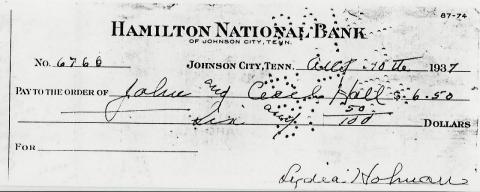 87-74
HAMILTON NATIONAL BANK
OF JOHNSON CITY, TENN.
No. 6766 JOHNSON CITY, TENN. 10th 1937
PAY TO THE ORDER OF John and Cecil Hall $ 6.50
Six and 50/100 DOLLARS
FOR
Lydia Holman